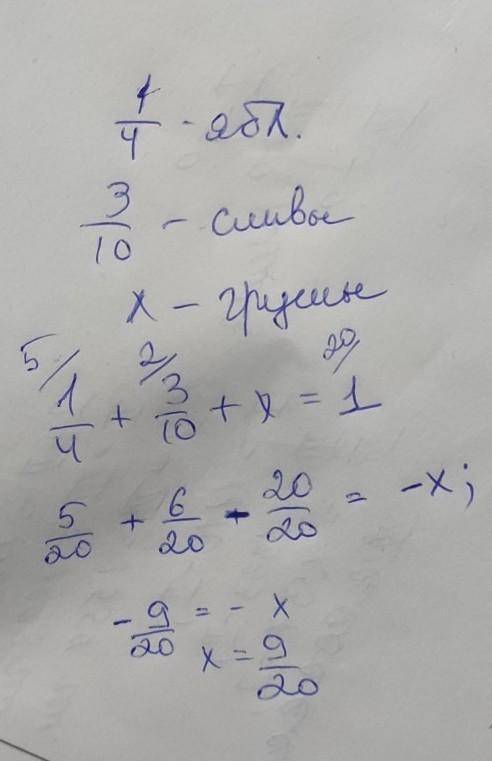 1/4 - ябл.
3/10 - сливы
x - груши
5/ 1/4 + 2/ 3/10 + x = 20/ 1
5/20 + 6/20 - 20/20 = -x;
- 9/20 = - x
x = 9/20